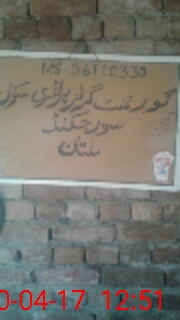 MS-36110339
گورنمنٹ گرلز پرائمری سکول
سورجکنڈ
ملتان
0-04-17 12:51